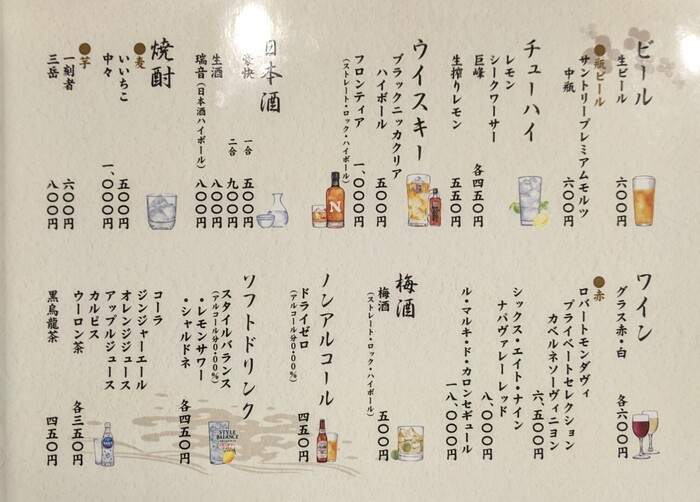 ビール
生ビール 六〇〇円
●瓶ビール
サントリープレミアムモルツ
中瓶 六〇〇円
チューハイ
レモン
シークワーサー
巨峰 各四五〇円
生搾りレモン 五五〇円
ウイスキー
ブラックニッカクリア
ハイボール 五〇〇円
フロンティア 一、〇〇〇円
(ストレート・ロック・ハイボール)
日本酒
豪快 一合 五〇〇円
二合 九〇〇円
生酒 八〇〇円
瑞音(日本酒ハイボール) 八〇〇円
焼酎
●麦
いいちこ 五〇〇円
中々 一、〇〇〇円
●芋
一刻者 六〇〇円
三岳 八〇〇円
ワイン
グラス赤・白 各六〇〇円
●赤
ロバートモンダヴィ
プライベートセレクション
カベルネソーヴィニヨン
六、五〇〇円
シックス・エイト・ナイン
ナパヴァレーレッド
八、〇〇〇円
ル・マルキ・ド・カロンセギュール
一八、〇〇〇円
梅酒
梅酒 五〇〇円
(ストレート・ロック・ハイボール)
ノンアルコール
ドライゼロ 四五〇円
(アルコール分0・00%)
スタイルバランス
(アルコール分0・00%)
・レモンサワー
・シャルドネ 各四五〇円
ソフトドリンク
コーラ
ジンジャーエール
オレンジジュース
アップルジュース
カルピス
ウーロン茶 各三五〇円
黒烏龍茶 四五〇円
N
STYLE
BALANCE